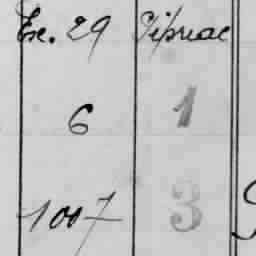 Exc. 29 Sipriac
6 1
1007 3